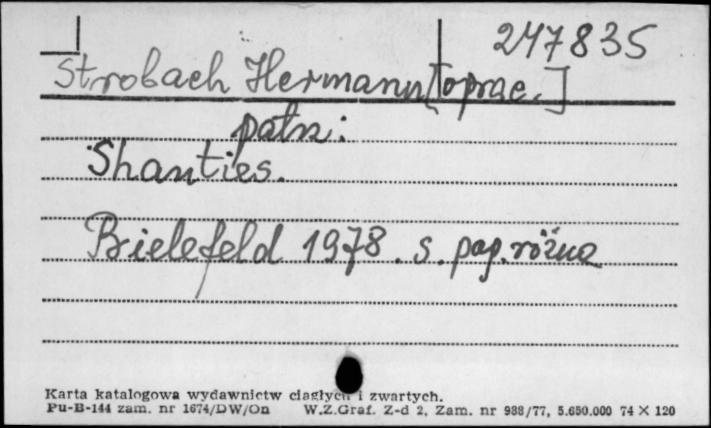 247835
Strobach Hermann [oprac.]
patrz:
Shanties.
Bielefeld 1978. s. pag. różna
Karta katalogowa wydawnictw ciągłych i zwartych.
Pu-B-144 zam. nr 1674/DW/On W.Z.Graf. Z-d 2, Zam. nr 988/77, 5.650.000 74 X 120